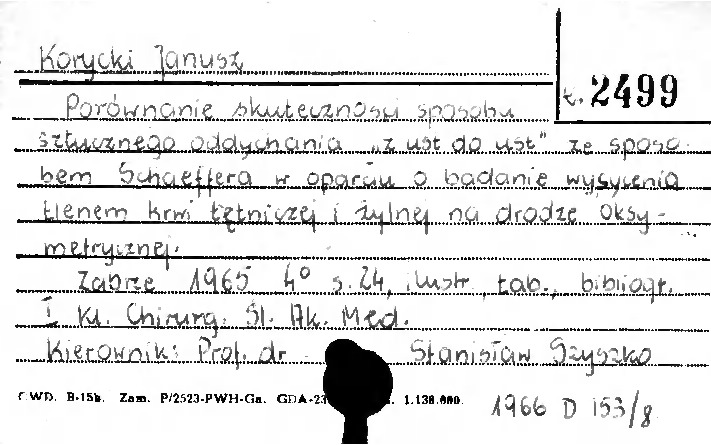 Korycki Janusz
Ł. 2499
Porównanie skuteczności sposobu
sztucznego oddychania "z ust do ust" ze sposo-
bem Schaeffera w oparciu o badanie wysycenia
tlenem krwi tętniczej i żylnej na drodze oksy-
metrycznej.
Zabrze 1965 4° s. 24, ilustr., tab., bibliogr.
I Kl. Chirurg. Śl. Ak. Med.
Kierownik: Prof. dr Stanisław Szyszko
CWD. B-15b. Zam. P/2523-PWH-Ga. GDA-23 1.138.000.
1966 D 153/8